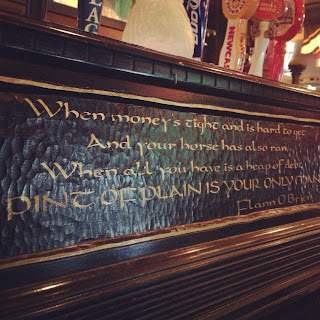 LAC
NEWCAS
When money's tight and is hard to get
And your horse has also ran
When all you have is a heap of debt
PINT OF PLAIN IS YOUR ONLY MAN
Flann O'Brien